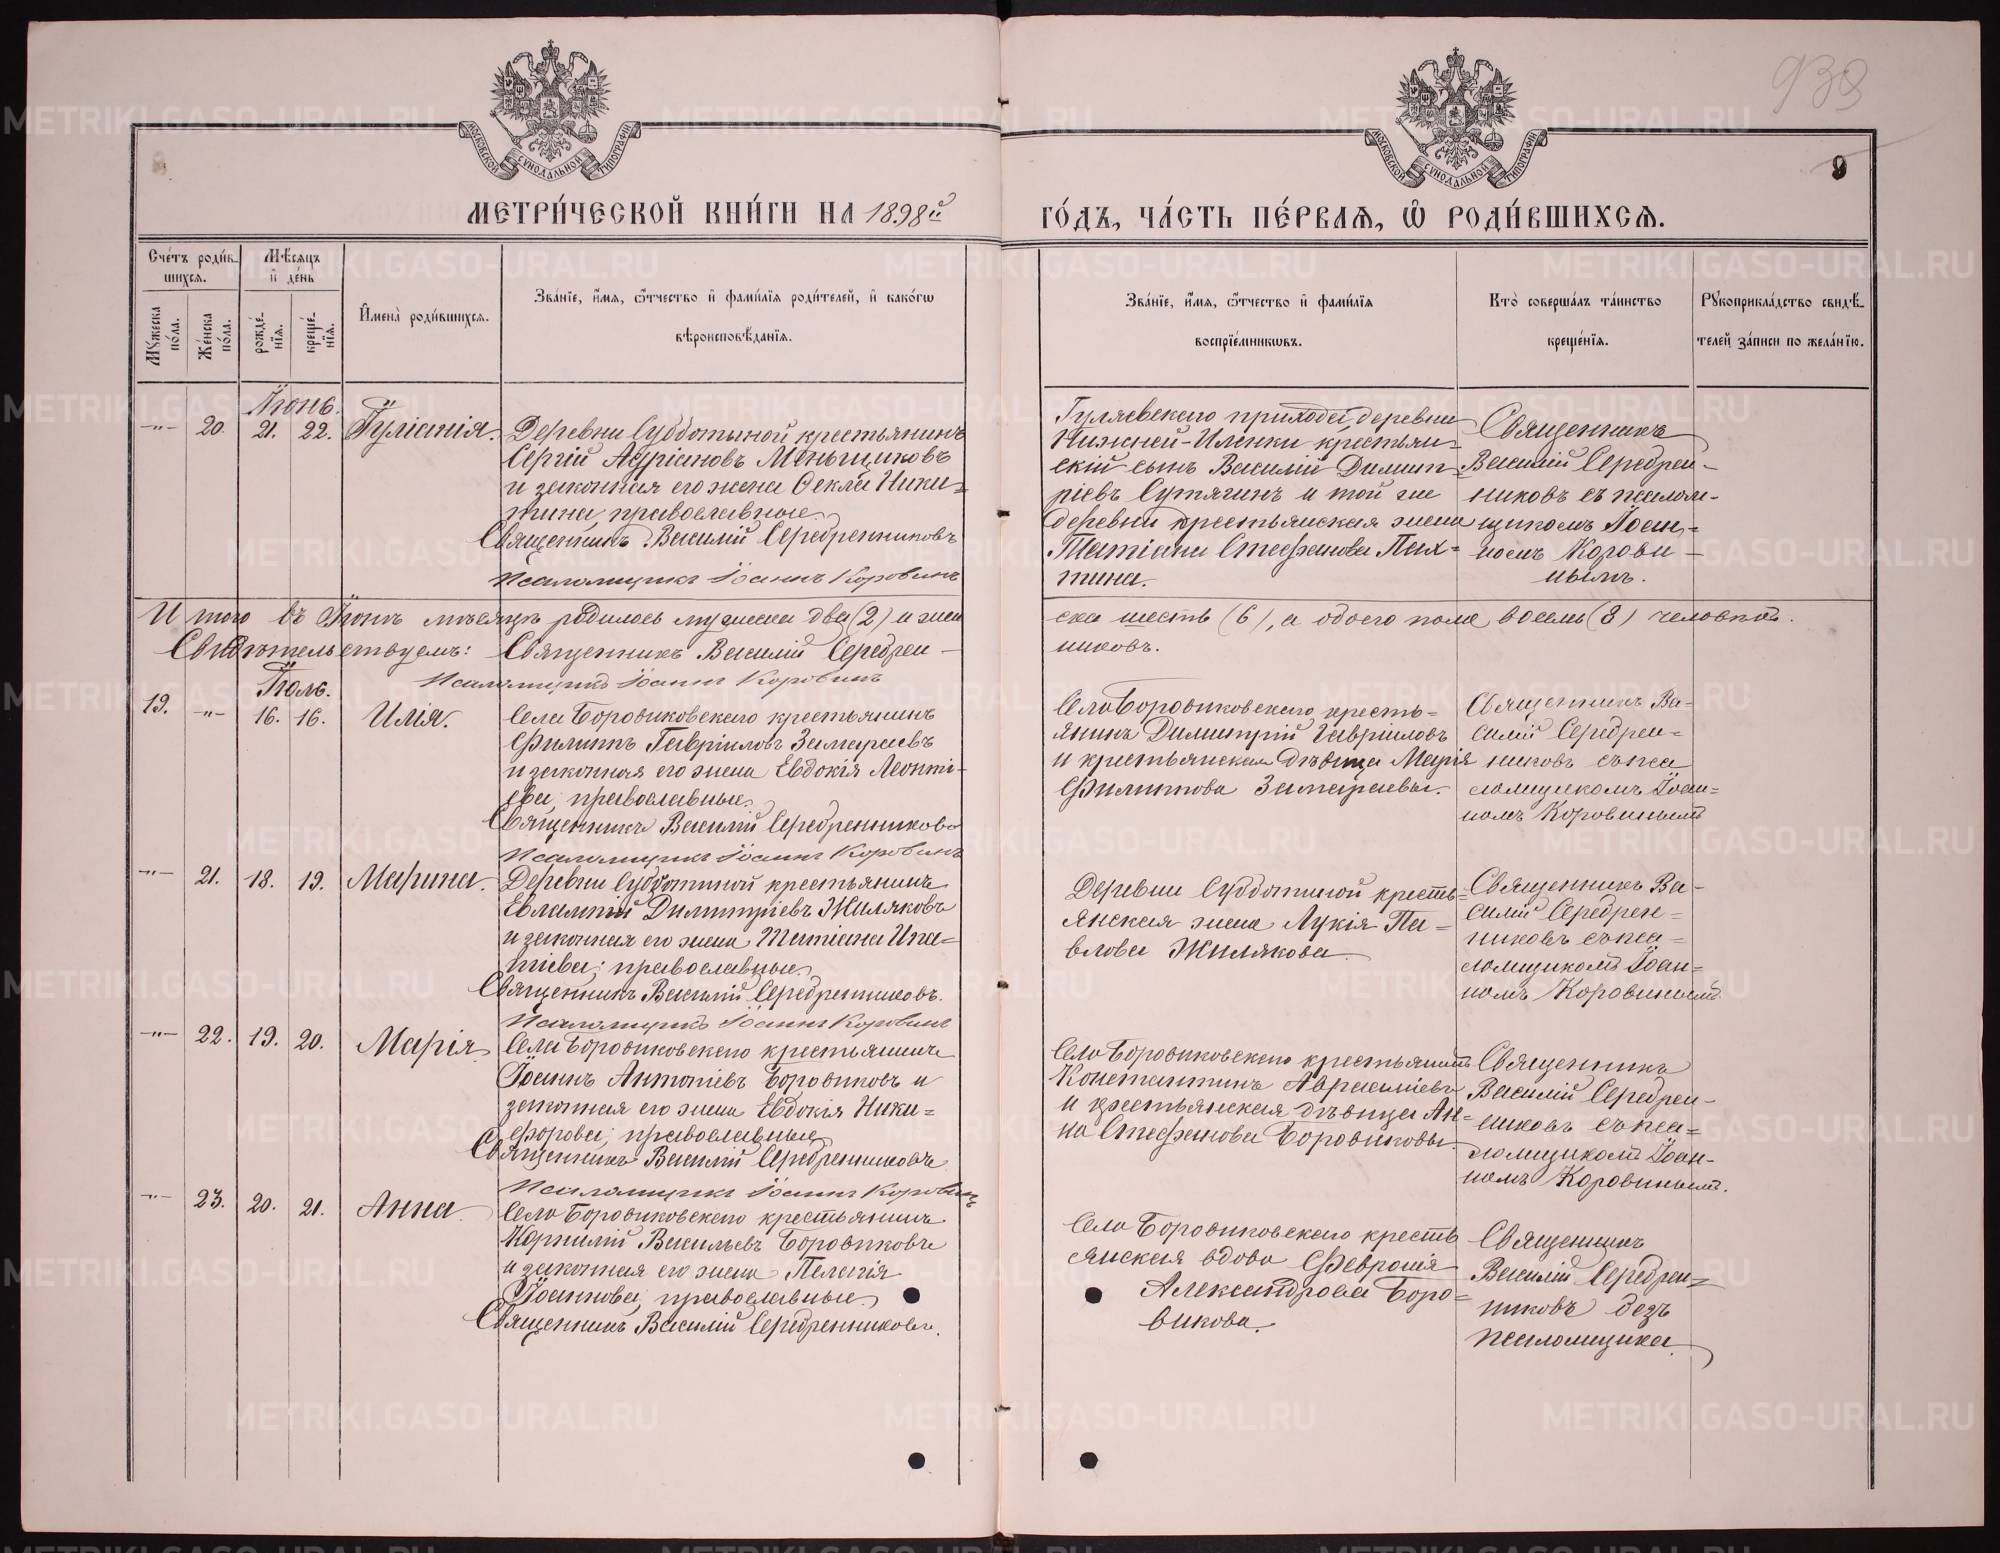 938
9
МОСКОВСКОЙ СУНОДАЛЬНОЙ ТИПОГРАФІИ
МОСКОВСКОЙ СУНОДАЛЬНОЙ ТИПОГРАФІИ
МЕТРИ́ЧЕСКОЙ КНИ́ГИ НА 1898й
ГО́ДЪ, ЧА́СТЬ ПЕ́РВАЯ, Ѡ РОДИ́ВШИХСЯ.
Сче́тъ роди́в-
шихся.
Мѣ́сяцъ
и҆ де́нь
Му́жеска по́ла.
Же́нска по́ла.
рожде́нїя.
креще́нїя.
И҆мена̀ роди́вшихся.
Зва́нїе, и҆́мя, ѻ҆́тчество и҆ фами́лїя роди́телей, и҆ како́гѡ
вѣроисповѣ́данїя.
Зва́нїе, и҆́мя, ѻ҆́тчество и҆ фами́лїя
воспрїе́мникѡвъ.
Кто̀ соверша́лъ та́инство
креще́нїя.
Рꙋкоприкла́дство свидѣ́-
телей за́писи по жела́нїю.
Іюнь.
-"- 20. 21. 22. Іуліанія.
Деревни Субботиной крестьянинъ
Сергій Адріановъ Меньщиковъ
и законная его жена Ѳекла Ники-
тина, православные.
Священникъ Василій Серебренниковъ
Псаломщикъ Іоаннъ Коровинъ
Гуляевскаго прихода, деревни
Нижней-Иленки крестьян-
скій сынъ Василій Димит-
ріевъ Сутягинъ и той же
деревни крестьянская жена
Татіана Стефанова Пах-
тина.
Священникъ
Василій Серебрен-
никовъ съ псалом-
щикомъ Іоан-
номъ Корови-
нымъ.
Итого въ Іюнѣ мѣсяцѣ родилось мужеска два (2) и жен
ска шесть (6), а обоего пола восемь (8) человѣкъ.
Свидѣтельствуемъ: Священникъ Василій Серебрен-
никовъ.
Псаломщикъ Іоаннъ Коровинъ
Іюль.
19. -"- 16. 16. Илія.
Села Боровиковскаго крестьянинъ
Филиппъ Гавріиловъ Замараевъ
и законная его жена Евдокія Леонті-
ева, православные.
Священникъ Василій Серебренниковъ
Псаломщикъ Іоаннъ Коровинъ
Села Боровиковскаго кресть-
янинъ Димитрій Гавріиловъ
и крестьянская дѣвица Марія
Филиппова Замараевы.
Священникъ Ва-
силій Серебрен-
никовъ съ пса
ломщикомъ Іоан-
номъ Коровинымъ
-"- 21. 18. 19. Марина.
Деревни Субботиной крестьянинъ
Евлампій Димитріевъ Жиляковъ
и законная его жена Татіана Ипа-
тіева; православные.
Священникъ Василій Серебренниковъ.
Псаломщикъ Іоаннъ Коровинъ
Деревни Субботиной кресть-
янская жена Лукія Па-
влова Жилякова.
Священникъ Ва-
силій Серебрен-
никовъ съ пса-
ломщикомъ Іоан-
номъ Коровинымъ.
-"- 22. 19. 20. Марія
Села Боровиковскаго крестьянинъ
Іоаннъ Антоніевъ Боровиковъ и
законная его жена Евдокія Ники-
форова; православные.
Священникъ Василій Серебренниковъ
Псаломщикъ Іоаннъ Коровинъ
Села Боровиковскаго крестьянинъ
Константинъ Авраамiевъ
и крестьянская дѣвица Ан-
на Стефанова Боровиковы.
Священникъ
Василій Серебрен-
никовъ съ пса-
ломщикомъ Іоан-
номъ Коровинымъ.
-"- 23. 20. 21. Анна.
Села Боровиковскаго крестьянинъ
Корнилій Васильевъ Боровиковъ
и законная его жена Пелагія
Іоаннова; православные.
Священникъ Василій Серебренниковъ.
Села Боровиковскаго кресть
янская вдова Февронія
Александрова Боро-
викова.
Священникъ
Василій Серебрен-
никовъ безъ
псаломщика.
METRIKI.GASO-URAL.RU